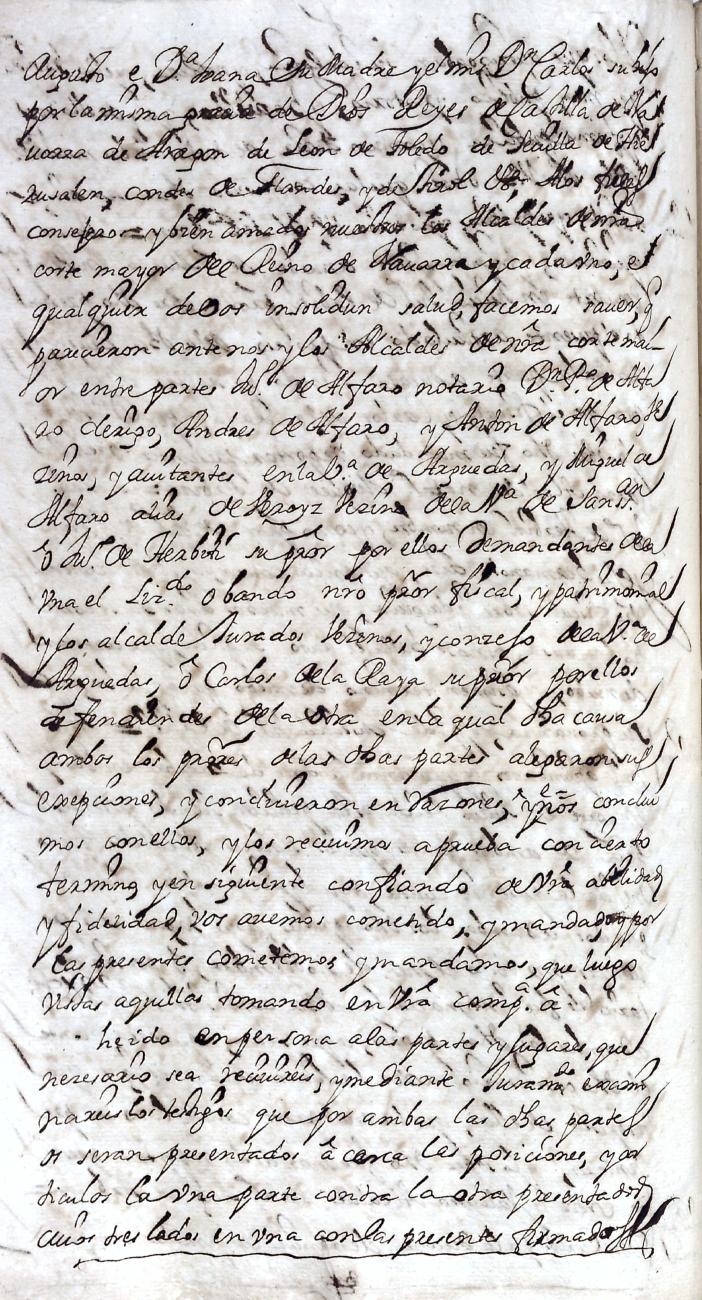 Augusto e D.ª Juana su Madre y el mis.º D.n Carlos su hijo
por la misma gracia de Dios Reyes de Castilla de Na
uarra de Aragon de Leon de Toledo de Seuilla de Hie
rusalen, condes de Flandes, y de Tirol &ª, A los fieles
consejeros y bien amados nuestros los Alcaldes de nrã
corte mayor del Reino de Nauarra y cada vno, e
qualquier de vos insolidun salud, facemos sauer, q̃
parecieron ante nos y los Alcaldes de nrã corte mai-
or entre partes Ju.º de Alfaro notario D.n P.º de Alfa
ro clerigo, Andres de Alfaro, y Anton de Alfaro, ve
zinos, y auitantes en la V.ª de Arguedas, y Miguel de
Alfaro alias de Veroyz vezino de la V.ª de
ô Ju.º de Herbiti su prõr por ellos demandantes de la
vna el Liz.do obando nrõ prõr fiscal, y patrimonial
y los alcalde Jurados vezinos, y conzejo de la V.ª de
Arguedas, ô Carlos de la Raya su prõr por ellos
defendientes de la otra en la qual dha causa
ambos los prõres de las dhas partes alegaron sus
exepciones, y concluieron en razones, y nos conclui
mos con ellos, y los receuimos a prueba con cierto
termino, y en siguiente confiando de vrã abilidad
y fidelidad, vos auemos cometido, y mandado, y por
las presentes cometemos, y mandamos, que luego
vistas aquellas tomando en vrã comp.ª â
heido en persona a las partes y lugares, que
nezesario sea receuireis, y mediante Juram.to exami
nareis los testigos que por ambas las dhas partes
os seran presentados â cerca las posiciones, y ar
ticulos la vna parte contra la otra presentados
cuios treslados en vna con las presentes firmados